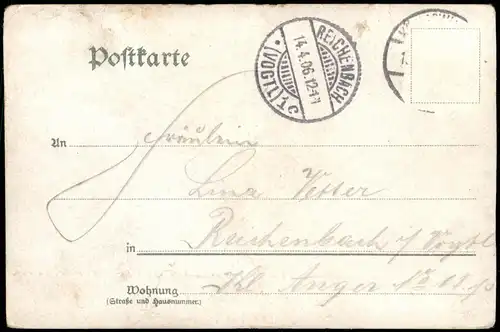 Postkarte
REICHENBACH
14.4.06.12-1N
* (VOGTL.) 1 c
An Fräulein
Lina Vetter
in Reichenbach i/Vogtl
Kl. Anger No
Wohnung
(Straße und Hausnummer.)